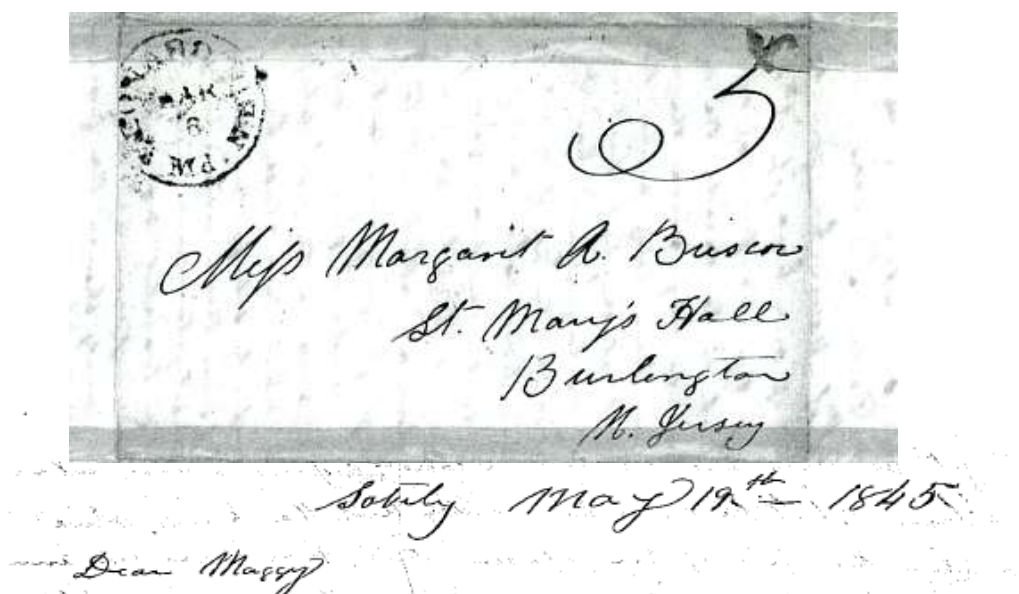 MAR
Md.
5
Miss Margarit A. Briscoe
St. Mary's Hall
Burlington
N. Jersey
May 19th 1845
Dear Maggy